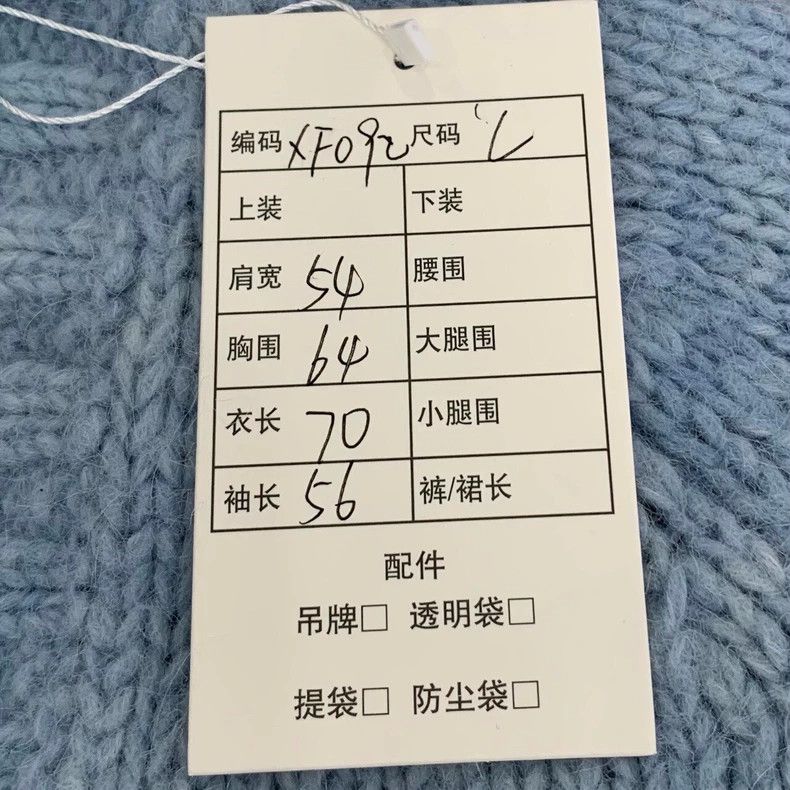 编码 XF092 尺码 L
上装 下装
肩宽 54 腰围
胸围 64 大腿围
衣长 70 小腿围
袖长 56 裤/裙长
配件
吊牌□ 透明袋□
提袋□ 防尘袋□